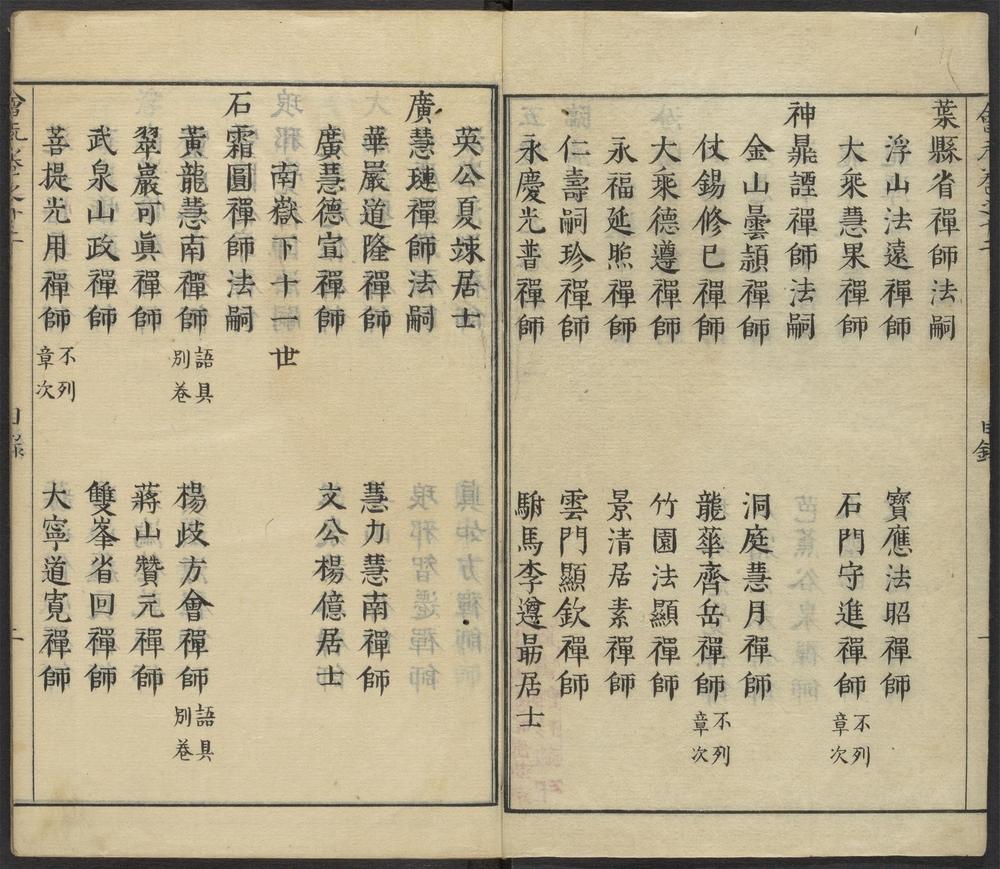 葉縣省禪師法嗣
浮山法遠禪師 寶應法昭禪師
大乘慧果禪師 石門守進禪師 不列章次
神鼎諲禪師法嗣
金山曇頴禪師 洞庭慧月禪師
仗錫修巳禪師 龍華齊岳禪師 不列章次
大乘德遵禪師 竹園法顯禪師
永福延照禪師 景清居素禪師
仁壽嗣珍禪師 雲門顯欽禪師
永慶光普禪師 駙馬李遵勗居士
英公夏竦居士
廣慧璉禪師法嗣
華嚴道隆禪師 慧力慧南禪師
廣慧德宣禪師 文公楊億居士
南嶽下十一世
石霜圓禪師法嗣
黃龍慧南禪師 語具別卷 楊歧方會禪師 語具別卷
翠巖可眞禪師 蔣山贊元禪師
武泉山政禪師 雙峯省回禪師
菩提光用禪師 不列章次 大寧道寬禪師
目錄